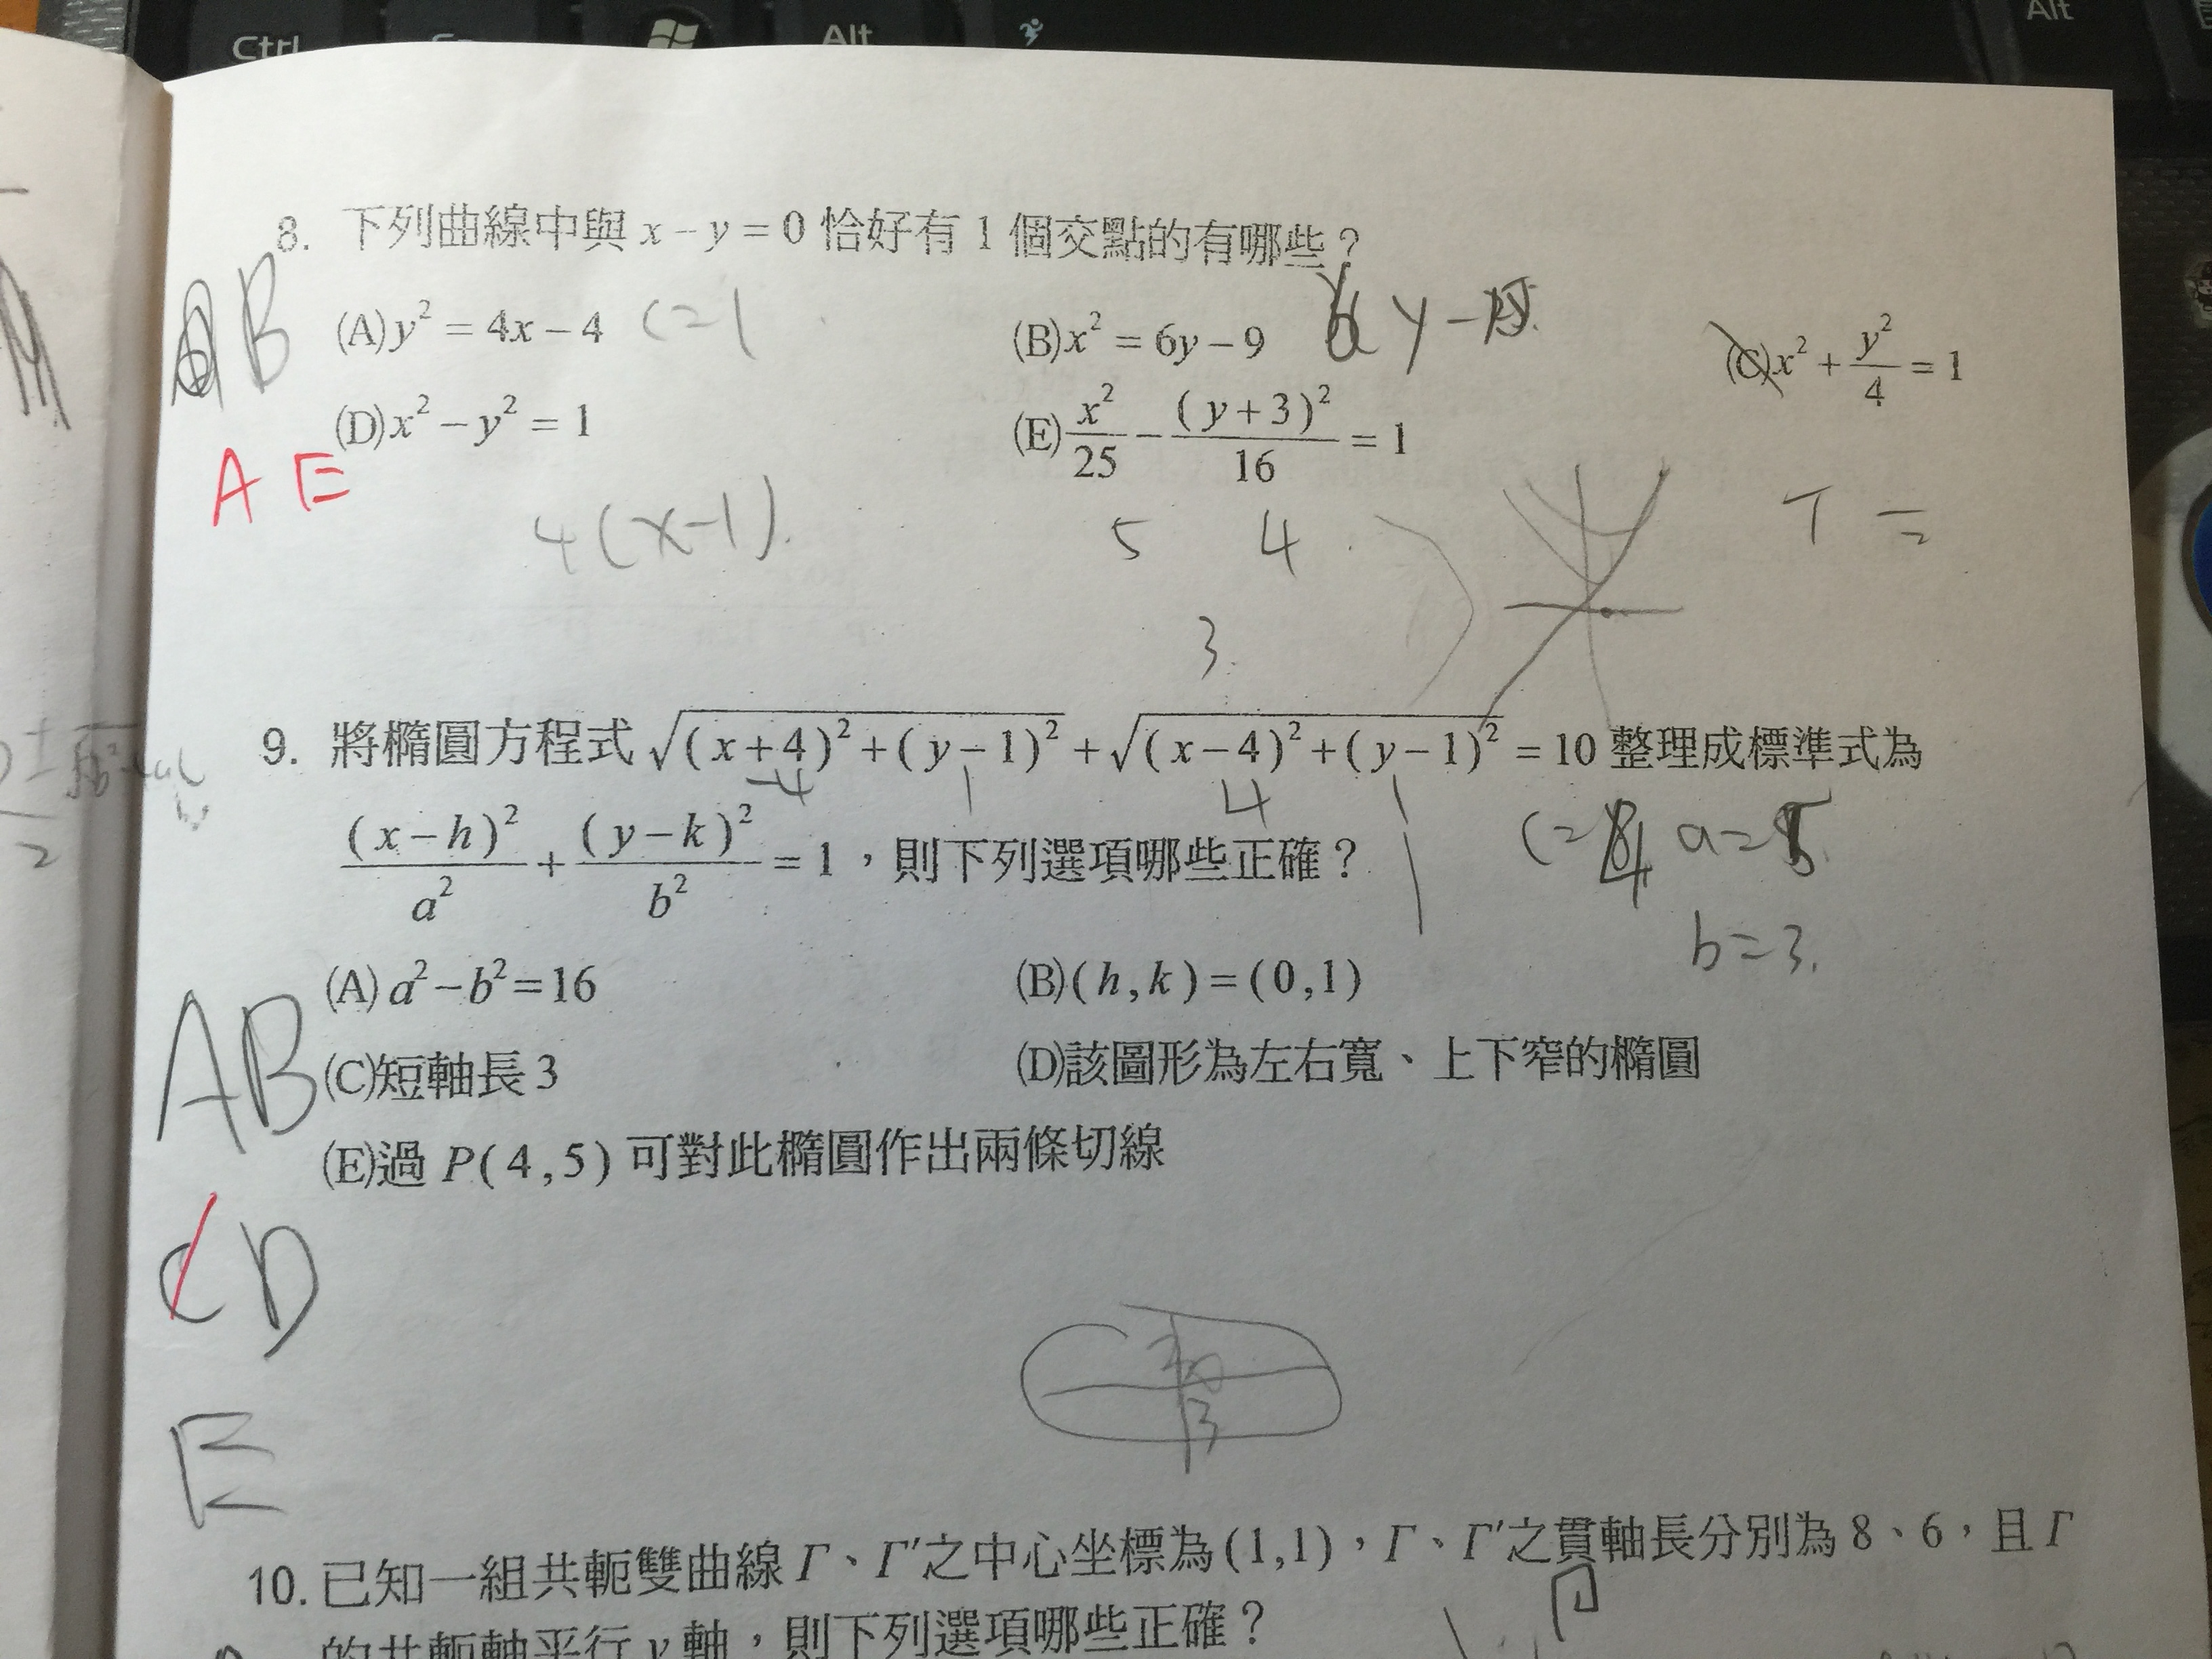 Ctrl
Alt
Alt
8. 下列曲線中與 x-y=0 恰好有 1 個交點的有哪些？
B
(A) y² = 4x-4
c=1
(B) x² = 6y-9
6y-
(C) x² + y²/4 = 1
(D) x² - y² = 1
(E) x²/25 - (y+3)²/16 = 1
A E
4(x-1)
5 4
3
9. 將橢圓方程式 √((x+4)²+(y-1)²) + √((x-4)²+(y-1)²) = 10 整理成標準式為
-4 1 4 1
(x-h)²/a² + (y-k)²/b² = 1，則下列選項哪些正確？
c=4 a=5
b=3
(A) a²-b²=16
(B) (h,k)=(0,1)
AB
(C)短軸長 3
(D)該圖形為左右寬、上下窄的橢圓
(E)過 P(4,5) 可對此橢圓作出兩條切線
C D
3
E
10. 已知一組共軛雙曲線 Γ、Γ′之中心坐標為(1,1)，Γ、Γ′之貫軸長分別為 8、6，且 Γ
的共軛軸平行 y 軸，則下列選項哪些正確？